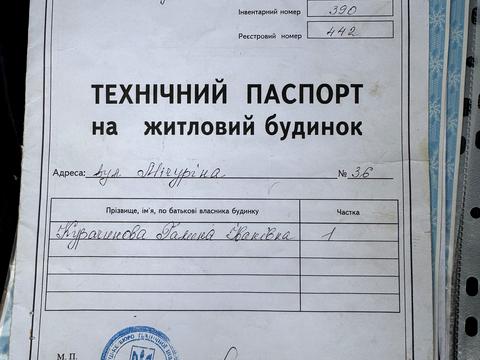 Інвентарний номер 390
Реєстровий номер 442
ТЕХНІЧНИЙ ПАСПОРТ
на житловий будинок
Адреса: вул Мічуріна № 36
Прізвище, ім'я, по батькові власника будинку Частка
Галина Іванівна 1
М. П.